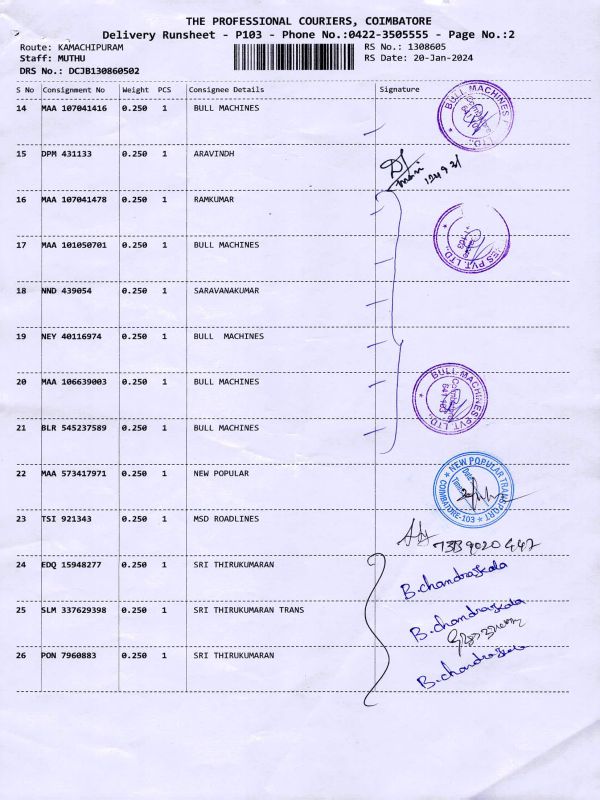 THE PROFESSIONAL COURIERS, COIMBATORE
Delivery Runsheet - P103 - Phone No.:0422-3505555 - Page No.:2
Route: KAMACHIPURAM RS No.: 1308605
Staff: MUTHU RS Date: 20-Jan-2024
DRS No.: DCJB130860502
S No Consignment No Weight PCS Consignee Details Signature
14 MAA 107041416 0.250 1 BULL MACHINES
BULL MACHINES P LTD.,
15 DPM 431133 0.250 1 ARAVINDH
16 MAA 107041478 0.250 1 RAMKUMAR
17 MAA 101050701 0.250 1 BULL MACHINES
ES PVT. LTD.,
18 NND 439054 0.250 1 SARAVANAKUMAR
19 NEY 40116974 0.250 1 BULL MACHINES
20 MAA 106639003 0.250 1 BULL MACHINES
BULL MACHINES PVT. LTD.,
21 BLR 545237589 0.250 1 BULL MACHINES
22 MAA 573417971 0.250 1 NEW POPULAR
NEW POPULAR TRANSPORT
COIMBATORE-103
23 TSI 921343 0.250 1 MSD ROADLINES
24 EDQ 15948277 0.250 1 SRI THIRUKUMARAN
B.chandraskala
25 SLM 337629398 0.250 1 SRI THIRUKUMARAN TRANS
B.chandraskala
26 PON 7960883 0.250 1 SRI THIRUKUMARAN
B.chandraskala